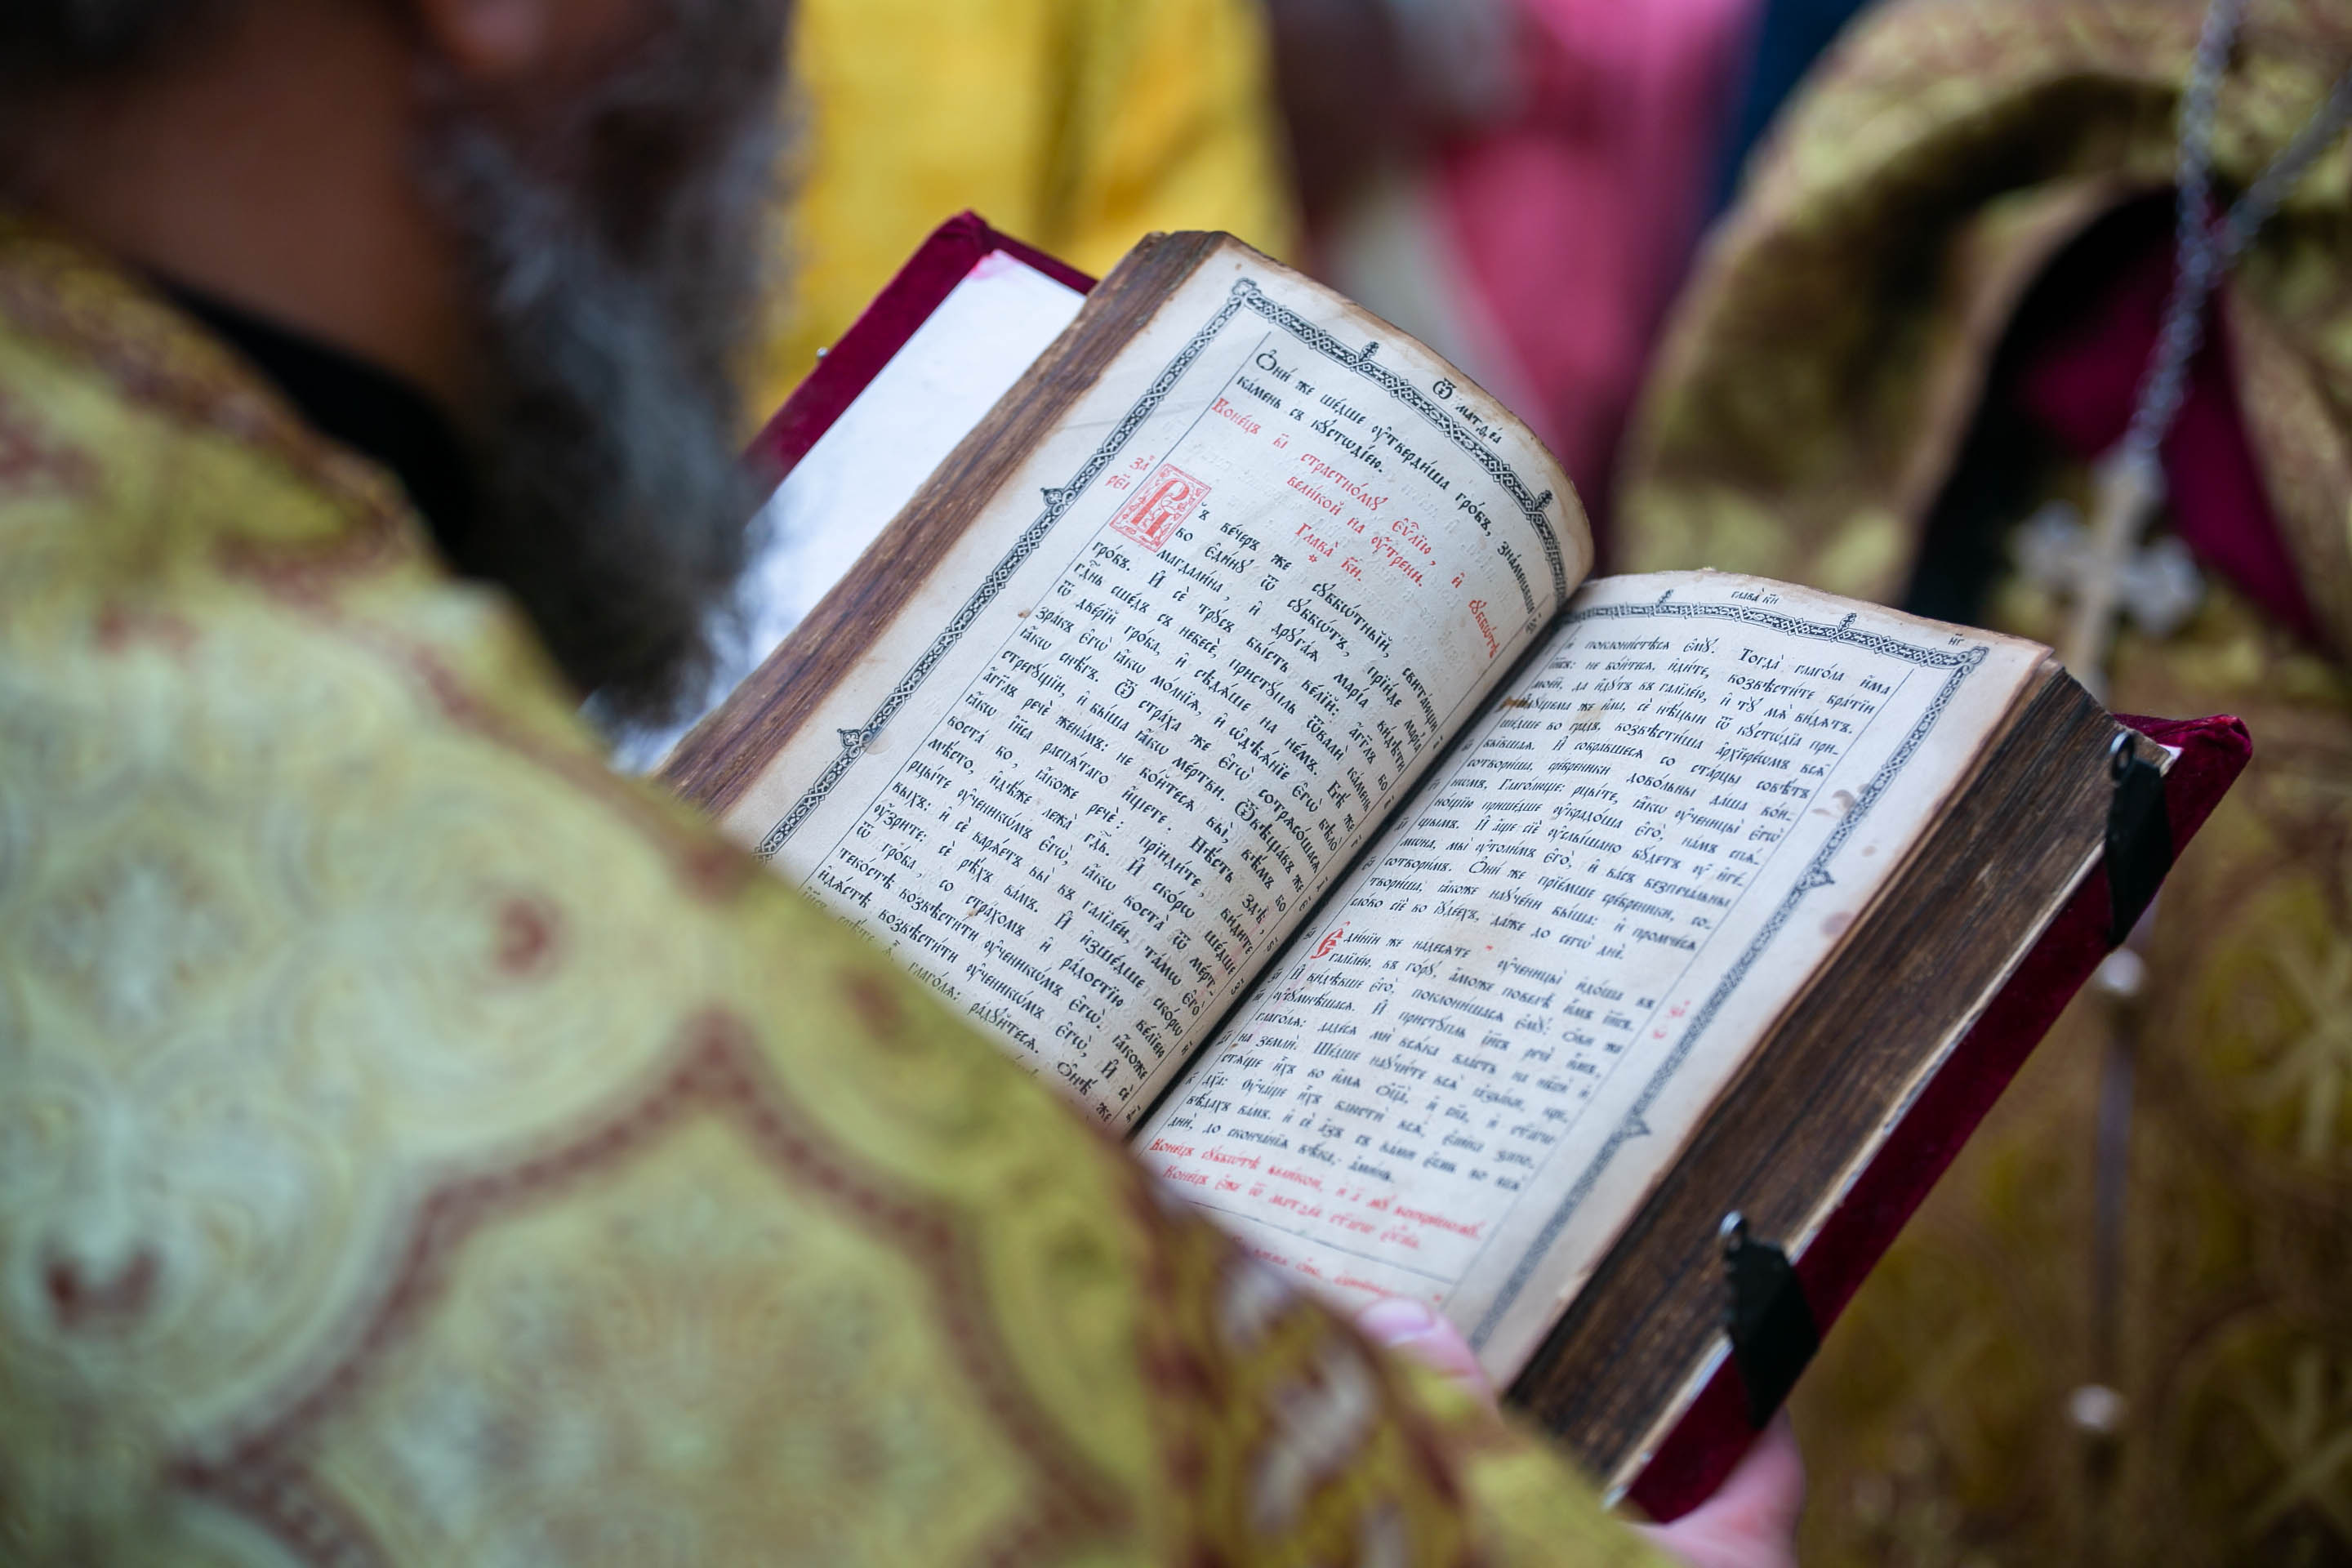 Ѿ мат.ѳ.еѧ
Ѻни́ же ше́дше ᲂу҆тверди́ша гро́бъ, зна́менавше
ка́мень съ кꙋстѡді́ею.
Коне́цъ в҃і стра́стномꙋ є҆ѵⷢ҇лїю, и҆ сꙋббѡ́тѣ
вели́кой на ᲂу҆́трени.
Глава̀ к҃и.
за҃
рє҃і
Въ ве́черъ же сꙋббѡ́тный, свита́ющи
во є҆ди́нꙋ ѿ сꙋббѡ́тъ, прїи́де марі́а
магдали́на, и҆ дрꙋга́ѧ марі́а, ви́дѣти
гро́бъ. И҆ сѐ трꙋ́съ бы́сть ве́лїй: а҆́гг҃лъ бо
гдⷭ҇нь сше́дъ съ небесѐ, пристꙋ́пль ѿвалѝ ка́мень
ѿ две́рїй гро́ба, и҆ сѣдѧ́ше на не́мъ. Бѣ́ же
зра́къ є҆гѡ̀ ꙗ҆́кѡ мо́лнїѧ, и҆ ѡ҆дѣѧ́нїе є҆гѡ̀ бѣло̀
ꙗ҆́кѡ снѣ́гъ. Ѿ стра́ха же є҆гѡ̀ сотрѧсо́шасѧ
стрегꙋ́щїи, и҆ бы́ша ꙗ҆́кѡ ме́ртви. Ѿвѣща́въ же
а҆́гг҃лъ речѐ жена́мъ: не бо́йтесѧ вы̀, вѣ́мъ бо
ꙗ҆́кѡ і҆и҃са распѧ́таго и҆́щете. Нѣ́сть здѣ̀,
воста́ бо, ꙗ҆́коже речѐ: прїиди́те, ви́дите
мѣ́сто, и҆дѣ́же лежа̀ гдⷭ҇ь. И҆ ско́рѡ ше́дше
рцы́те ᲂу҆ченикѡ́мъ є҆гѡ̀, ꙗ҆́кѡ воста̀ ѿ ме́рт-
выхъ: и҆ сѐ варѧ́етъ вы̀ въ галїле́и, та́мѡ є҆го̀
ᲂу҆́зрите: сѐ рѣ́хъ ва́мъ. И҆ и҆зше́дше ско́рѡ
ѿ гро́ба, со стра́хомъ и҆ ра́достїю ве́лїею
теко́стѣ возвѣсти́ти ᲂу҆ченикѡ́мъ є҆гѡ̀. Ꙗ҆́коже
и҆дѧ́стѣ возвѣсти́ти ᲂу҆ченикѡ́мъ є҆гѡ̀, и҆ сѐ
глаго́лѧ: ра́дꙋйтесѧ. Ѻнѣ́ же
глава̀ к҃и
н҃г
поклони́стѣсѧ є҆мꙋ̀. Тогда̀ глаго́ла и҆́ма
і҆и҃съ: не бо́йтесѧ, и҆ди́те, возвѣсти́те бра́тїи
мое́й, да и҆́дꙋтъ въ галїле́ю, и҆ тꙋ̀ мѧ̀ ви́дѧтъ.
же и҆́ма, сѐ нѣ́цыи ѿ кꙋстѡді́ѧ при-
ше́дше во гра́дъ, возвѣсти́ша а҆рхїере́ѡмъ всѧ̑
бы́вшаѧ. И҆ собра́вшесѧ со ста́рцы совѣ́тъ
сотвори́ша, сре́бреники дово́льны да́ша во́и-
нѡмъ, Глаго́люще: рцы́те, ꙗ҆́кѡ ᲂу҆ченицы̀ є҆гѡ̀
но́щїю прише́дше ᲂу҆крадо́ша є҆го̀, на́мъ спѧ́-
щымъ. И҆ а҆́ще сїѐ ᲂу҆слы́шано бꙋ́детъ ᲂу҆ и҆ге́-
мѡна, мы̀ ᲂу҆то́лимъ є҆го̀, и҆ ва́съ безпеча́льны
сотвори́мъ. Ѻни́ же прїе́мше сре́бреники, со-
твори́ша, ꙗ҆́коже наꙋче́ни бы́ша: и҆ промче́сѧ
сло́во сїѐ во і҆ꙋде́ехъ, да́же до сегѡ̀ днѐ.
Є҆ди́нїи же на́десѧте ᲂу҆ченицы̀ и҆до́ша въ
галїле́ю, въ го́рꙋ, а҆́може повелѣ̀ и҆̀мъ і҆и҃съ.
И҆ ви́дѣвше є҆го̀, поклони́шасѧ є҆мꙋ̀: ѻ҆́ви же
ᲂу҆сꙋмнѣ́шасѧ. И҆ пристꙋ́пль і҆и҃съ речѐ и҆̀мъ,
глаго́лѧ: даде́сѧ мѝ всѧ́ка вла́сть на нб҃сѝ и҆
на землѝ. Ше́дше наꙋчи́те всѧ̑ ꙗ҆зы́ки, кре-
стѧ́ще и҆̀хъ во и҆́мѧ ѻ҆ц҃а̀, и҆ сн҃а, и҆ ст҃а́гѡ
дх҃а: ᲂу҆ча́ще и҆̀хъ блюстѝ всѧ̑, є҆ли̑ка запо-
вѣ́дахъ ва́мъ. и҆ сѐ а҆́зъ съ ва́ми є҆́смь во всѧ̑
дни̑, до сконча́нїѧ вѣ́ка. а҆ми́нь.
Коне́цъ сꙋббѡ́тѣ вели́кой, и҆
Коне́цъ є҆́же ѿ матѳе́а ст҃а́гѡ є҆ѵⷢ҇лїа.